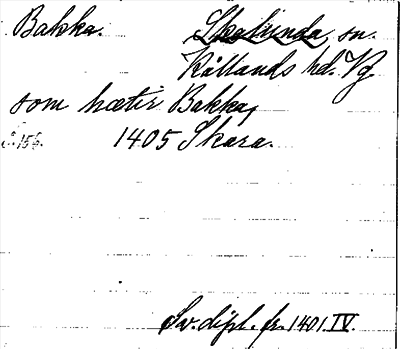 Bakka. Skalunda sn.
Kållands hd. Vg.
som hætir Bakka,
s. 156. 1405 Skara.
Sv. dipl. fr. 1401. IV.